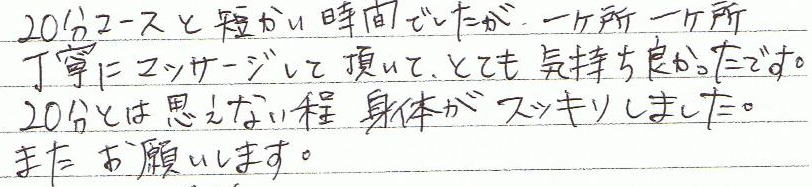 20分コースと短かい時間でしたが、一ヶ所一ヶ所
丁寧にマッサージして頂いて、とても気持ち良かったです。
20分とは思えない程身体がスッキリしました。
またお願いします。